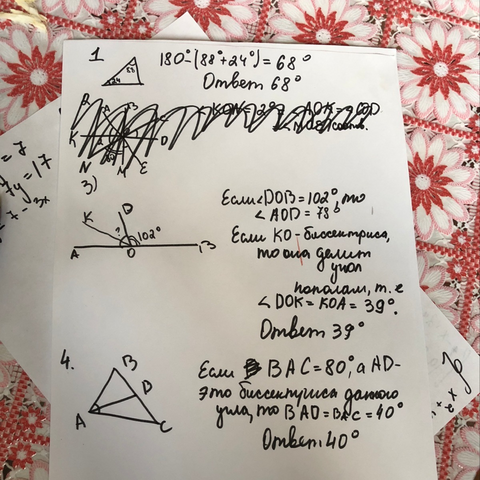 1
180°-(88°+24°)=68°
88
24
Ответ 68°
B
K
N M E
3)
Если ∠DOB=102°, то
∠AOD=78°
K D
? 102°
A O B
Если KO-биссектриса,
то она делит
угол
пополам, т.е
∠DOK=KOA=39°.
Ответ 39°
4.
B
D
A C
Если BAC=80°, а AD-
это биссектриса данного
угла, то BAD=BAC=40°
Ответ: 40°
= 7
7y=17
7-3x